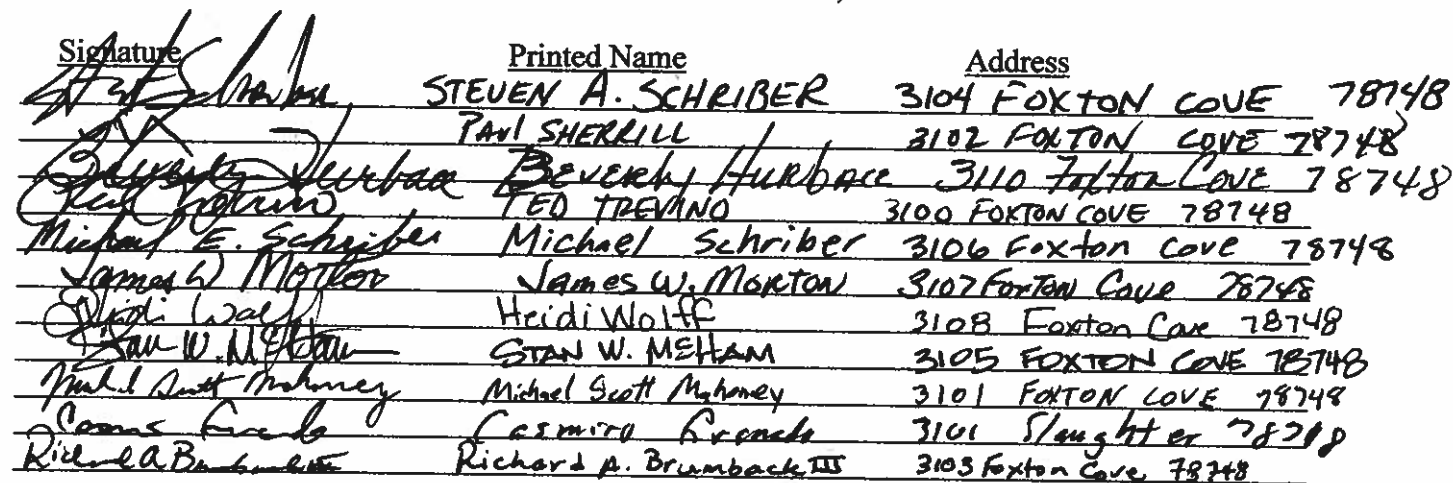 Signature Printed Name Address
STEVEN A. SCHRIBER 3104 FOXTON COVE 78748
PAUL SHERRILL 3102 FOXTON COVE 78748
Beverly Hurbace BEVERLY HURBACE 3110 Foxton Cove 78748
TED TREVINO 3100 FOXTON COVE 78748
Michael E. Schriber Michael Schriber 3106 Foxton Cove 78748
James W Morton James W. MORTON 3107 Foxton Cove 78748
Heidi Wolff Heidi Wolff 3108 Foxton Cove 78748
Stan W. Meham STAN W. MEHAM 3105 FOXTON COVE 78748
Michael Scott Mahoney Michael Scott Mahoney 3101 FOXTON COVE 78748
Casmiro 3101 Slaughter
Richard A Richard A. Brumback III 3103 Foxton Cove 78748